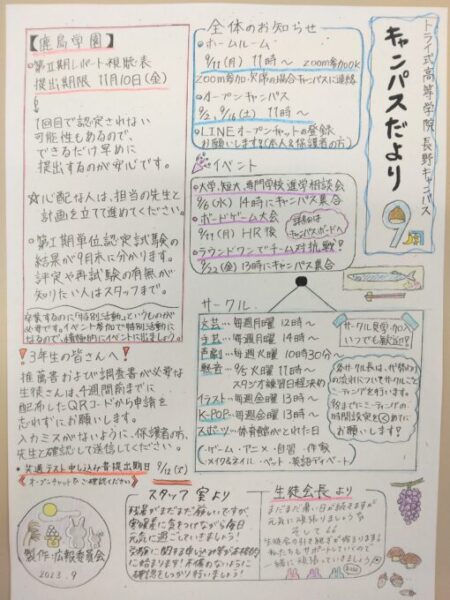 トライ式高等学院 長野キャンパス
キャンパスだより
9月
全体のお知らせ
・ホームルーム
9/11(月) 11時〜 zoom参加OK
zoom参加・欠席の場合キャンパスに連絡
・オープンキャンパス
9/2, 9/16(土) 11時〜
・LINEオープンチャットの登録
お願いします?(本人&保護者の方)
イベント
・大学,短大,専門学校進学相談会
9/6(水) 14時にキャンパス集合
・ボードゲーム大会
9/11(月) HR後
詳細は
キャンパスボードへ
・ラウンドワンでチーム対抗戦?
9/22(金) 13時にキャンパス集合
サークル
文芸…毎週月曜 12時〜
手芸…毎週月曜 14時〜
声劇…毎週火曜 10時30分〜
軽音…9/5 火曜 11時〜
スタジオ練習日程決め
イラスト…毎週金曜 13時〜
K-POP…毎週金曜 13時〜
スポーツ…体育館がとれた日
・ゲーム・アニメ・自習・作家
・メイク&ネイル・ペット・英語ディベート
サークル見学・加入
いつでも歓迎!?
お願いします?
【鹿島学園】
・第Ⅱ期レポート・視聴表
提出期限 11月10日(金)
1回目で認定されない
可能性もあるので、
できるだけ早めに
提出するのが安心です。
☆心配な人は、担当の先生と
計画を立てて進めてください。
・第Ⅰ期単位認定試験の
結果が9月末に分かります。
評定や再試験の有無が
知りたい人はスタッフまで。
卒業するのに「特別活動」というものが
必要です。イベント参加で特別活動に
なるので、積極的にイベントに出ましょう。
!3年生の皆さんへ!
推薦書および調査書が必要な
生徒さんは、4週間前までに
配布したQRコードから申請を
忘れずにお願いします。
入力ミスがないように、保護者の方、
先生と確認して送信してください。
・共通テスト申し込み書提出期日
《オープンチャットをご確認ください》
スタッフ 室より
残暑がまだまだ厳しいですが、
熱中症に気をつけながら毎日
元気に過ごしていきましょう!
受験に関する申し込み等が本格的
に始まります!不備のないように
確認をしっかり行いましょう!
生徒会長より
まだまだ暑い日が続きますが
元気に頑張りましょうね
そして
生徒会の引き継ぎが始まります
私たちもサポートしていくので
一緒に頑張っていきましょう
製作・広報委員会
2023.9